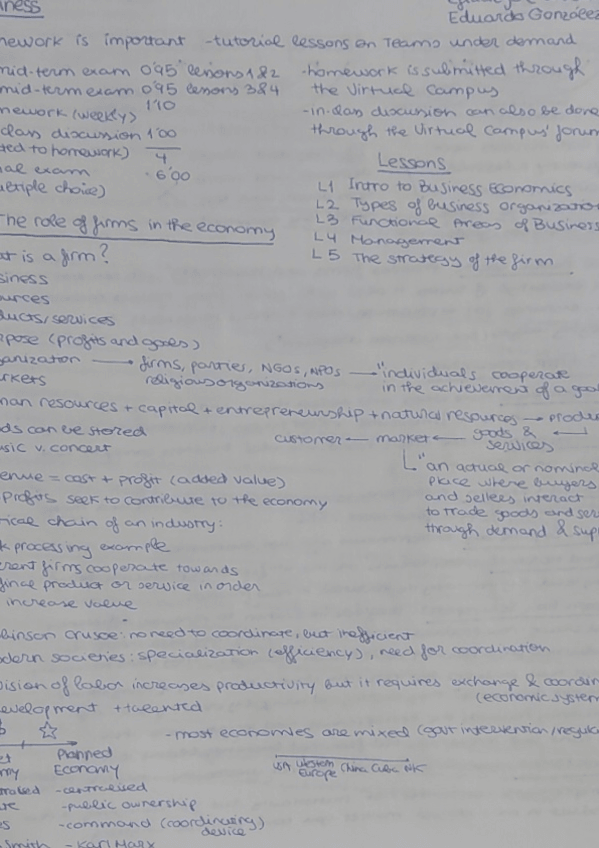 iness
Eduardo González
nework is important -tutorial lessons on Teams under demand
mid-term exam 0'95 lessons 1&2
mid-term exam 0'95 lessons 3&4
1'10
nework (weekly)
class discussion 1'00
ted to homework)
4
al exam
6'00
ultiple choice)
-homework is submitted through
the Virtual Campus
-in-class discussion can also be done
through the Virtual Campus' forum
Lessons
L1 Intro to Business Economics
L2 Types of Business Organization
L3 Functional Areas of Business
L4 Management
L5 The strategy of the firm
The role of firms in the economy
at is a firm?
siness
ources
ducts/services
rpose (profits and goals)
ganization → firms, parties, NGOs, NPOs → "individuals cooperate
religious organizations
in the achievement of a goal
rkets
man resources + capital + entrepreneurship + natural resources → produc
ds can be stored
customer ← market ← goods &
services
usic v. concert
"an actual or nominal
place where buyers
and sellers interact
to trade goods and ser
through demand & supp
enue = cost + profit (added value)
Profits seek to contribute to the economy
tical chain of an industry:
k processing example
erent firms cooperate towards
final product or service in order
increase value
binson Crusoe: no need to coordinate, but inefficient
odern societies: specialization (efficiency), need for coordination
vision of labor increases productivity but it requires exchange & coordin
(economic system
evelopment + talented
-most economies are mixed (govt intervention/regula
et
my
Planned
Economy
USA Western
Europe China Cuba NK
-centralised
-public ownership
-command (coordinating)
device
Smith - Karl Marx